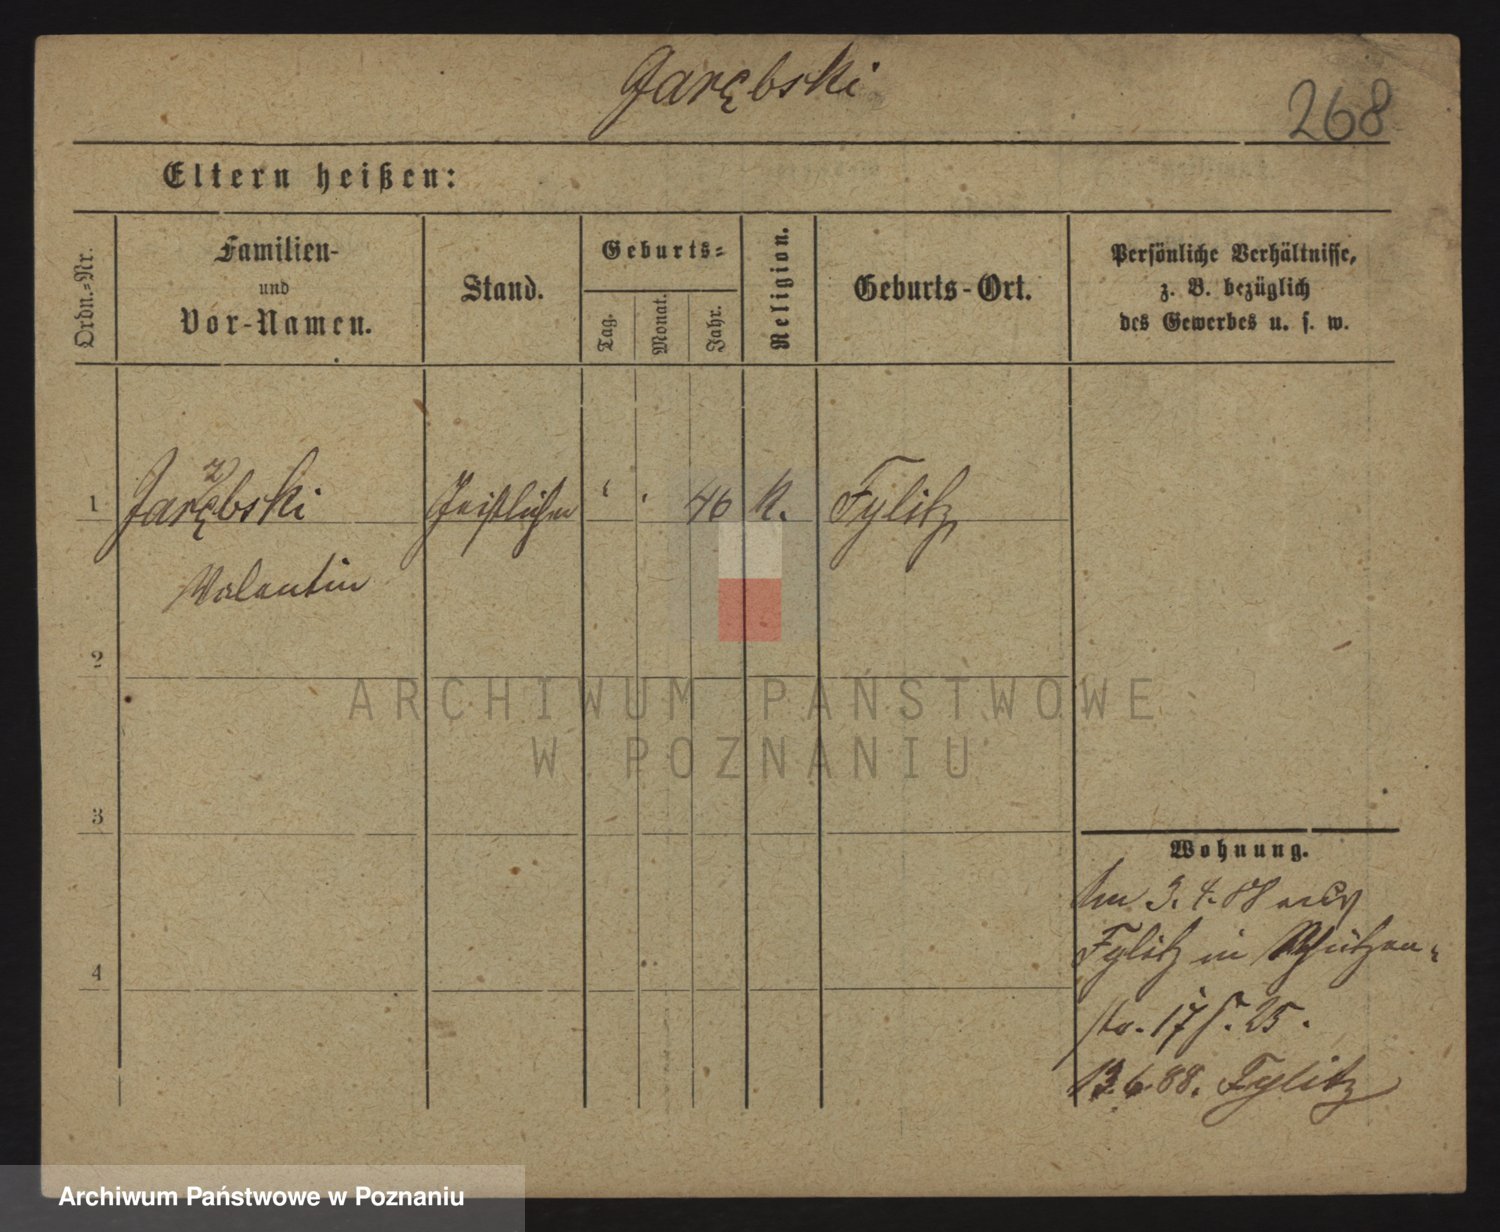 Jarębski
268
Eltern heißen:
Ordn.-Nr.
Familien-
und
Vor-Namen.
Stand.
Geburts-
Tag.
Monat.
Jahr.
Religion.
Geburts-Ort.
Persönliche Verhältnisse,
z. B. bezüglich
des Gewerbes u. s. w.
1
Jarębski
Geistlicher
46
K.
Fylitz
Valentin
2
ARCHIWUM PAŃSTWOWE
W POZNANIU
3
Wohnung.
3. 4. 88
Fylitz in Schützen-
str. 17 25.
13.6.88. Fylitz
4
Archiwum Państwowe w Poznaniu